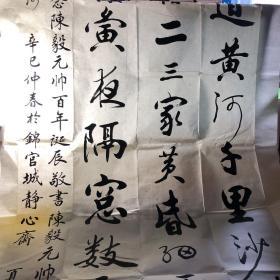 黄河千里沙
二三家黄昏细
夜隔窓数
念陳毅元帥百年誕辰敬書陳毅元帥
河 辛巳仲春於錦官城静心齋